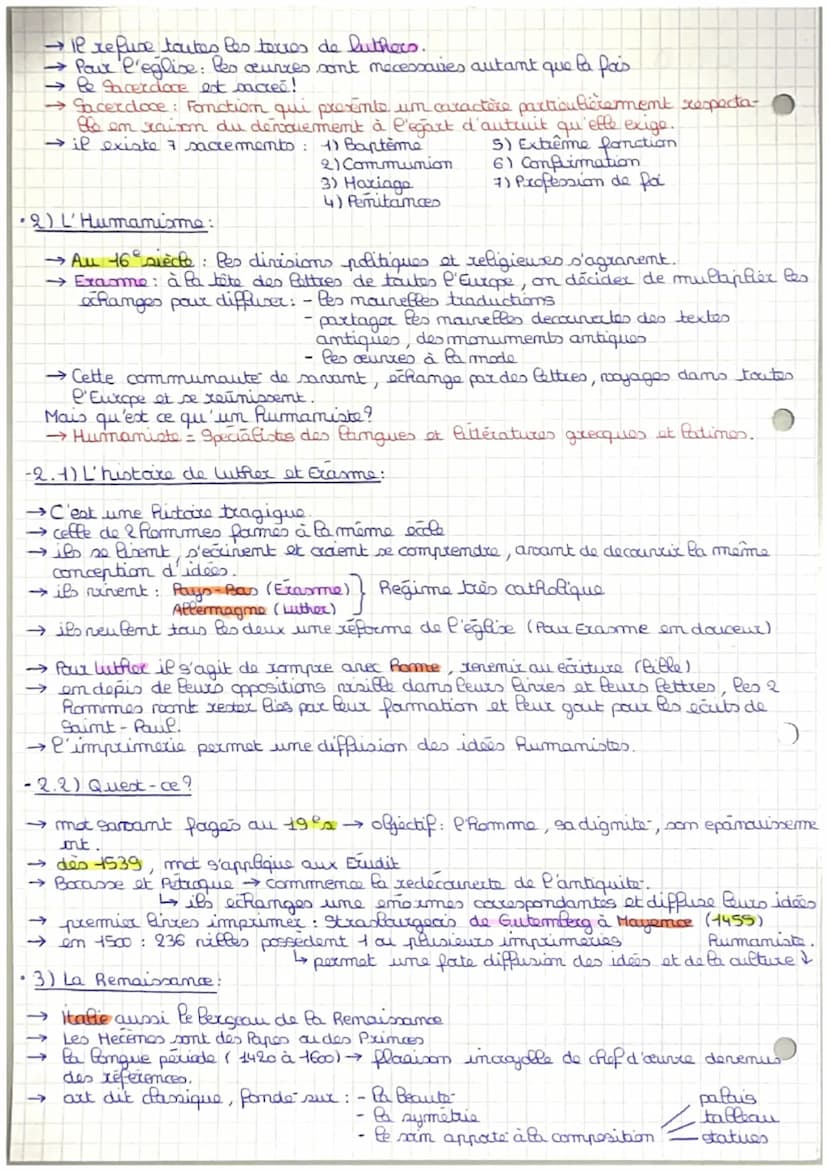 → Il refuse toutes les terres de luthers.
→ Pour l'eglise : les œuvres sont necessaires autant que la fois
→ le Sacerdoce est sacreé !
→ Sacerdoce : Fonction qui présente un caractère particulièrement respecta-
ble en raison du dénouement à l'egart d'autruit qu'elle exige.
→ il existe 7 sacrements : 1) Baptême 5) Extrême fonction
2) Communion 6) Confirmation
3) Mariage 7) Profession de foi
4) Penitances
• 2) L'Humanisme :
→ Au 16e siècle : les divisions politiques et religieuses s'agravent.
→ Erasme : à la tête des lettres de toutes l'Europe, on décider de multiplier les
échanges pour diffuser : - les nouvelles traductions
- partager les nouvelles decouvertes des textes
antiques, des monuments antiques
- les œuvres à la mode
→ Cette communauté de savant, échange par des lettres, voyages dans toutes
l'Europe et se réunissent.
Mais qu'est ce qu'un humaniste ?
→ Humaniste = Spécialistes des langues et littératures grecques et latines.
- 2.1) L'histoire de Luther et Erasme :
→ C'est une histoire tragique.
→ celle de 2 hommes formés à la même école
→ ils se lisent, s'ecrivent et croient se comprendre, avant de decouvrir la même
conception d'idées.
→ ils vivent : Pays-Bas (Erasme) } Régime très catholique
Allemagne (Luther)
→ ils veulent tous les deux une réforme de l'église (Pour Erasme en douceur)
→ Pour luther il s'agit de rompre avec Rome, revenir au écriture (Bible)
→ en depis de leurs oppositions visible dans leurs livres et leurs lettres, les 2
hommes vont rester liés par leur formation et leur gout pour les écrits de
Saint-Paul.
→ l'imprimerie permet une diffusion des idées humanistes.
- 2.2) Quest-ce ?
→ mot savant fagés au 19e s → objectif : l'homme, sa dignité, son epanouisseme
nt.
→ dès 1539, mot s'applique aux Erudit
→ Bocasse et Petroque → commence la redécouverte de l'antiquité.
↳ ils échanges une enormes correspondantes et diffuse leurs idées
→ premier livres imprimer : Strasbourgeois de Gutemberg à Mayence (1455) humaniste.
→ en 1500 : 236 villes possèdent 1 ou plusieurs imprimeries
↳ permet une forte diffusion des idées et de la culture ↓
• 3) La Renaissance :
→ Italie aussi le berçeau de la Renaissance
→ Les Mecènes sont des Papes ou des Princes
→ la longue période (1420 à 1600) → floraison incroyable de chef d'œuvre devenus
des références.
→ art dit classique, fondé sur : - la beauté palais
- la symétrie tableau
- le soin apporté à la composition statues